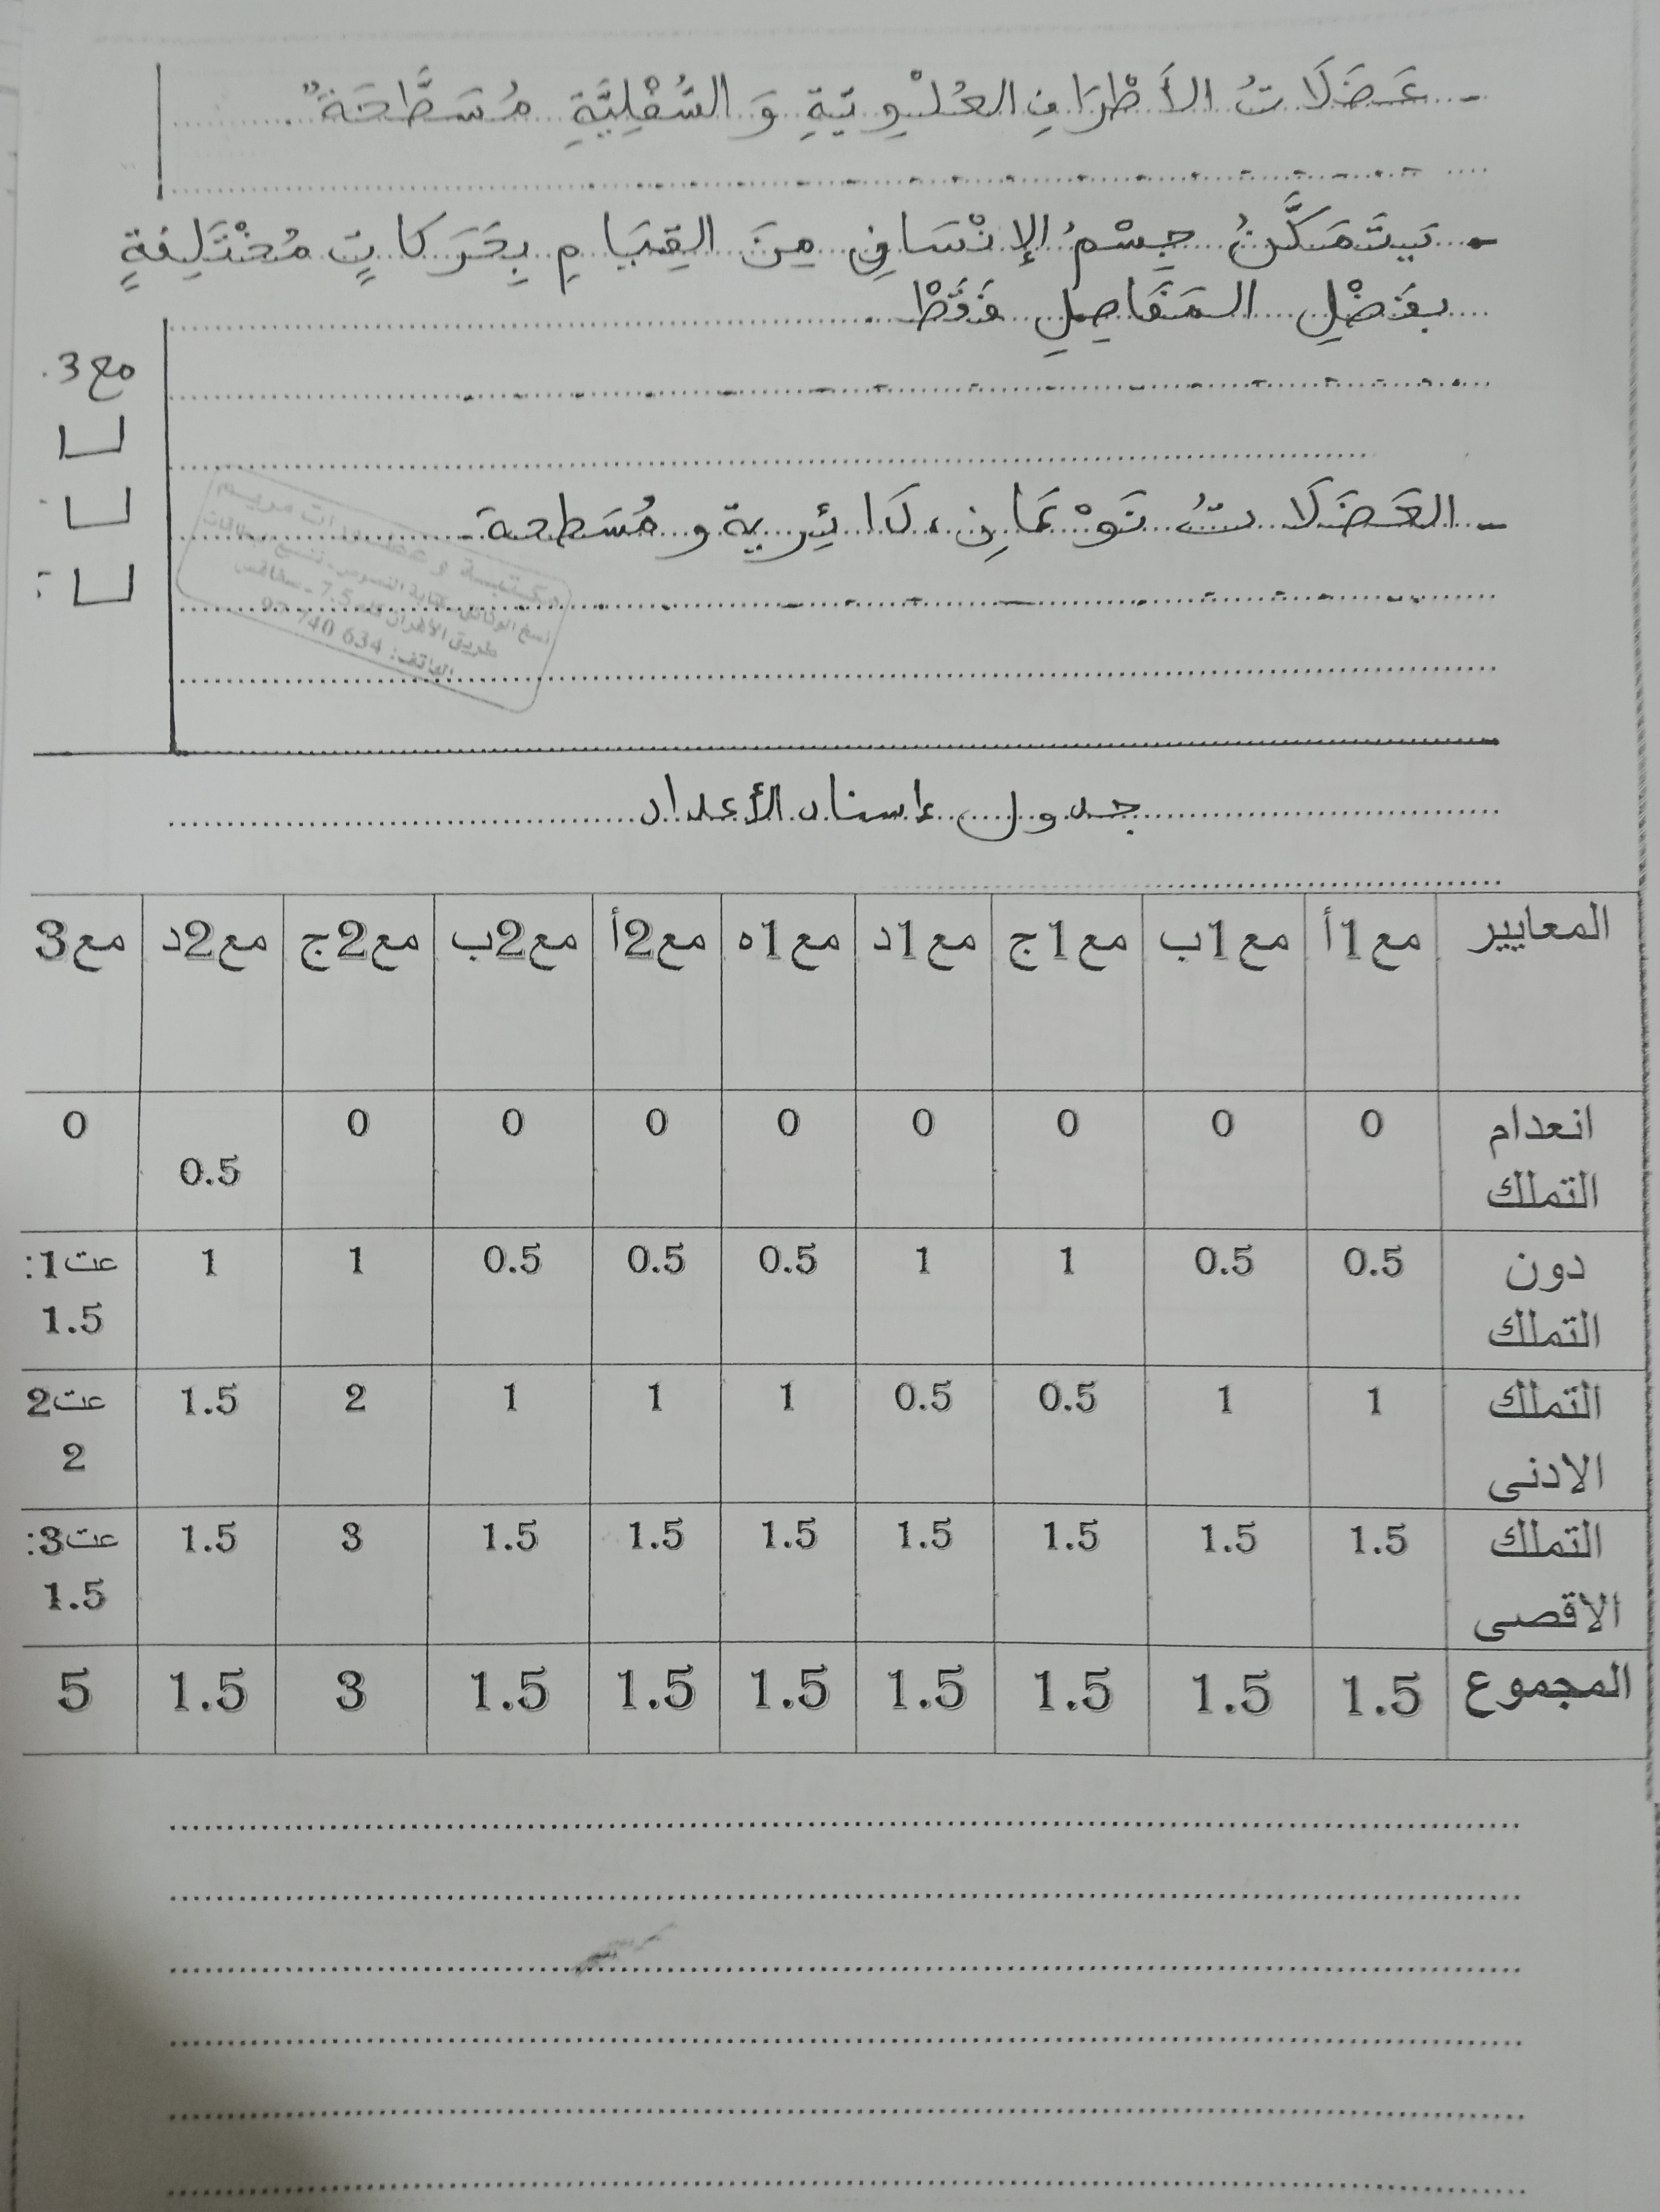 - عَضَلَاتُ الأَطْرَافِ العُلْوِيَّةِ وَ السُّفْلِيَّةِ مُسَطَّحَةٌ".
- يَتَمَكَّنُ جِسْمُ الإِنْسَانِ مِنَ القِيَامِ بِحَرَكَاتٍ مُخْتَلِفَةٍ
بِفَضْلِ المَفَاصِلِ فَقَطْ.
مع3
- العَضَلَاتُ نَوْعَانِ، دَائِرية و مُسَطحة.
مكتبة و
نسخ الوثائق
طريق الأفران كلم 7.5 - صفاقس
الهاتف: 634 740 97
جدول إسناد الأعداد
المعايير مع1أ مع1ب مع1ج مع1د مع1ه مع2أ مع2ب مع2ج مع2د مع3
انعدام التملك 0 0 0 0 0 0 0 0 0.5 0
دون التملك 0.5 0.5 1 1 0.5 0.5 0.5 1 1 عت1: 1.5
التملك الادنى 1 1 0.5 0.5 1 1 1 2 1.5 عت2 2
التملك الاقصى 1.5 1.5 1.5 1.5 1.5 1.5 1.5 3 1.5 عت3: 1.5
المجموع 1.5 1.5 1.5 1.5 1.5 1.5 1.5 3 1.5 5